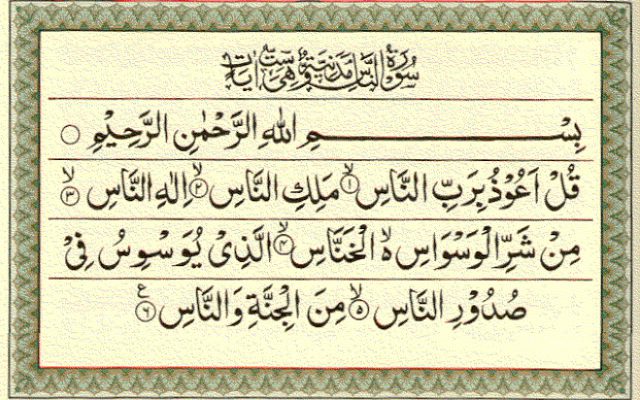 سُوْرَةُ النَّاسِ مَدَنِيَّةٌ وَّهِیَ سِتُّ اٰيَاتٍ
بِسْـــــــــــــــمِ اللهِ الرَّحْمٰنِ الرَّحِيْمِ ○
قُلْ اَعُوْذُ بِرَبِّ النَّاسِ ۙ﴿۱﴾ مَلِكِ النَّاسِ ۙ﴿۲﴾ اِلٰهِ النَّاسِ ۙ﴿۳﴾
مِنْ شَرِّ الْوَسْوَاسِ ۙ۵ الْخَنَّاسِ ۙ﴿۴﴾ الَّذِیْ يُوَسْوِسُ فِیْ
صُدُوْرِ النَّاسِ ۙ﴿۵﴾ مِنَ الْجِنَّةِ وَ النَّاسِ ﴿۶﴾ ع